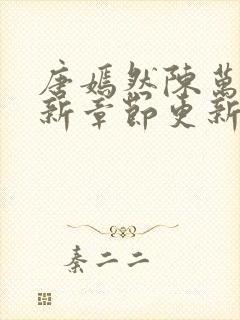 唐嫣然陳萬
新章節更新
秦二二